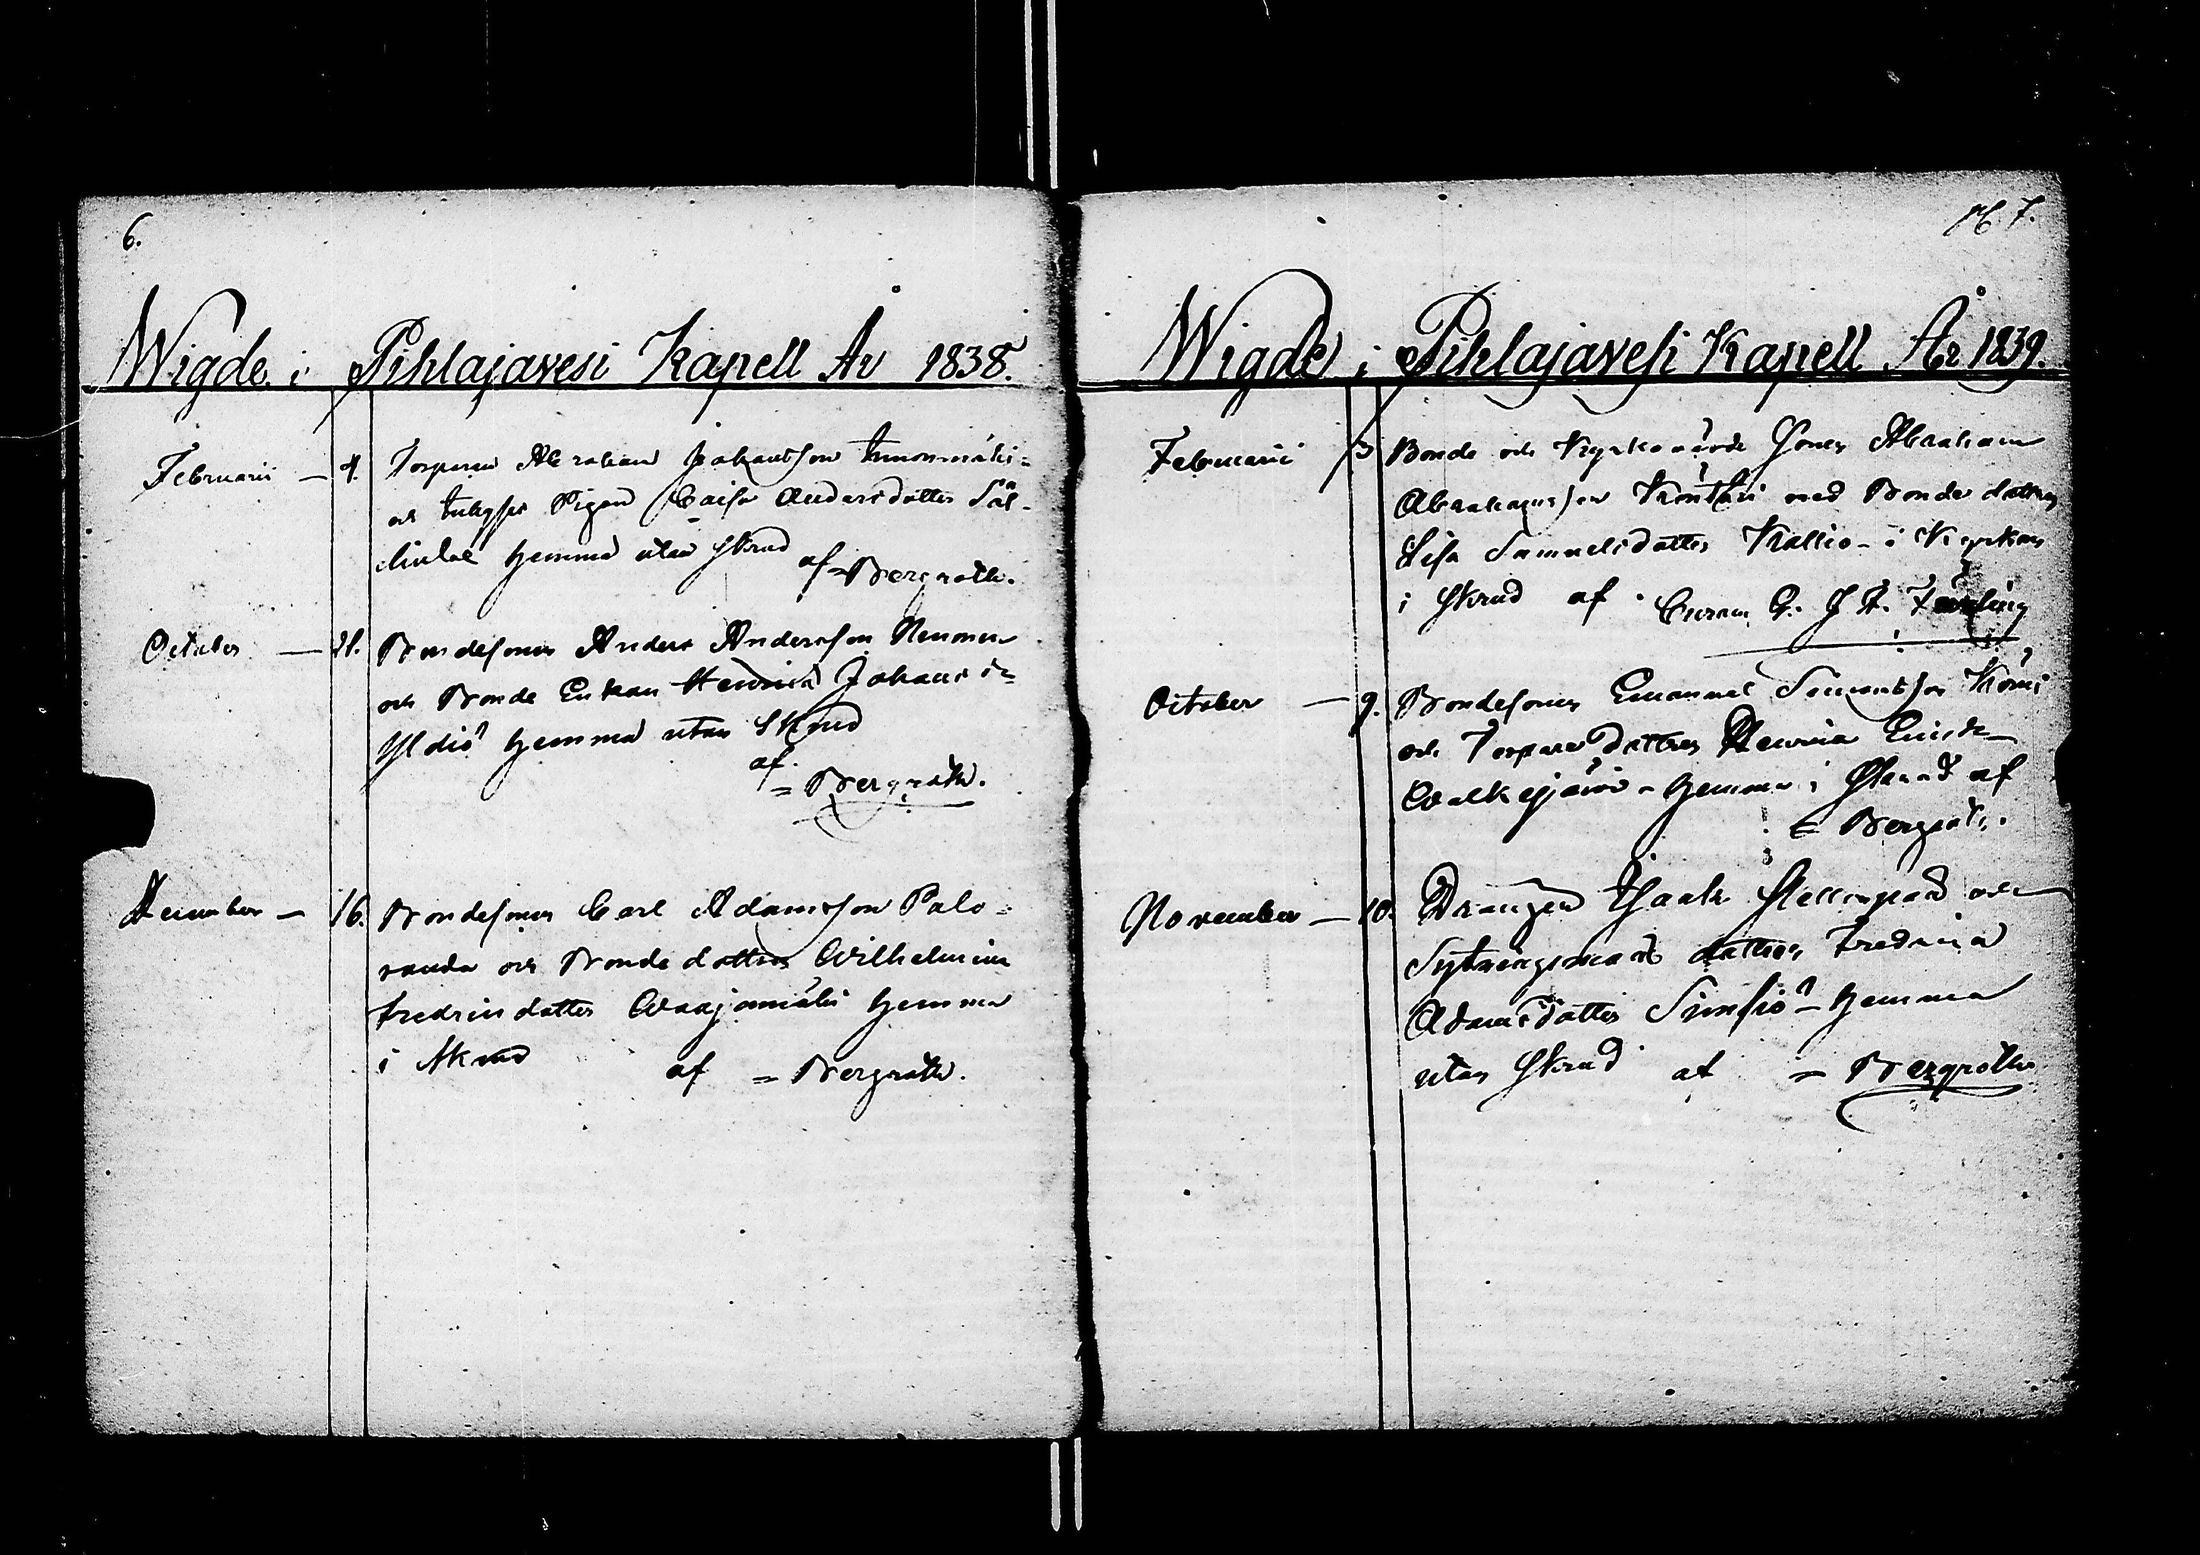 6.
Wigde i Pihlajavesi Kapell År 1838.
Februarii — 4. Torparen Abraham Johansson
och Pigan Caisa Andersdotter Säl-
hemma utan skrud af = Bergroth.
October — 21. Bondesonen Anders Andersson
och Bonde Enkan Henrica Johansd=
hemma utan Skrud
af
= Bergroth.
December — 16. Bondesonen Carl Adamsson Palo=
randa och Bonde dottren Wilhelmina
Fredricsdotter hemma
i Skrud af = Bergroth.
7.
Wigde i Pihlajavesi Kapell År 1839.
Februarii 3 Bonde och Kyrkovärds Sonen Abraham
Abrahamsson med Bonde dottren
Lisa Samuelsdotter Kallio - i Kyrkan
i Skrud af
October — 9. Bondesonen Emanuel Simonsson
och Torpare Dottren Henrica
Walkejärvi - hemma i Skrud af
= Bergroth.
November — 10. Drängen Isaak och
Sytningsmans dottren Fredrica
Adamsdotter - hemma
utan Skrud af = Bergroth